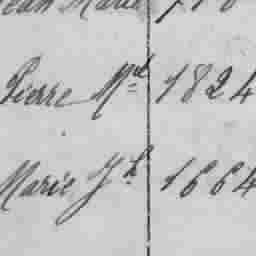 Jean Marie
Pierre Md 1824
Marie Jh 1664